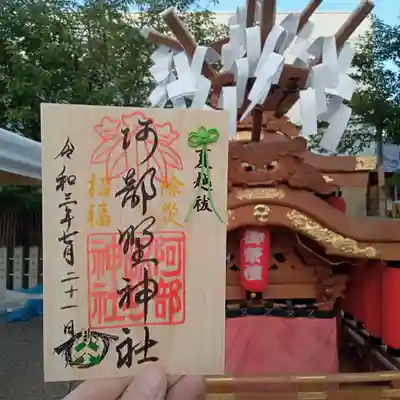 夏越祓
除災
阿部野神社
招福
阿部野神社
令和三年七月二十一日
御祭禮